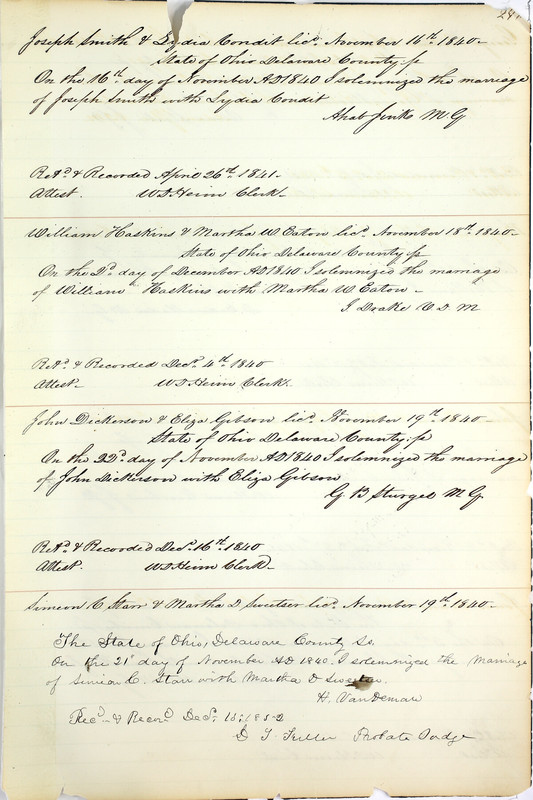 Joseph Smith & Lydia Condit licd. November 16th. 1840-
State of Ohio Delaware County ss
On the 16th day of November AD 1840 I solemnized the marriage
of Joseph Smith with Lydia Condit
Ahab Jinks M G
Retd. & Recorded April 26th. 1841-
Attest. Clerk-
William Haskins & Martha W Eaton licd. November 18th. 1840-
State of Ohio Delaware County ss
On the 2d. day of December AD 1840 I solemnized the marriage
of William Haskins with Martha W Eaton-
J. Drake V. D. M
Retd. & Recorded Decr. 4th. 1840
Attest- Clerk.
John Dickerson & Eliza Gibson licd. November 19th. 1840-
State of Ohio Delaware County ss
On the 22d. day of November AD 1840 I solemnized the marriage
of John Dickerson with Eliza Gibson
G B Sturges M G.
Retd. & Recorded Decr. 16th. 1840
Attest. Clerk-
Simeon C Starr & Martha D Sweetser licd. November 19th. 1840-
The State of Ohio, Delaware County Ss.
On the 21st day of November A.D 1840. I solemnized the Marriage
of Simeon C. Starr with Martha D Sweetser.
H. VanDeman
Recd. & Record Decr. 15. 1852
D T Fuller Probate Judge